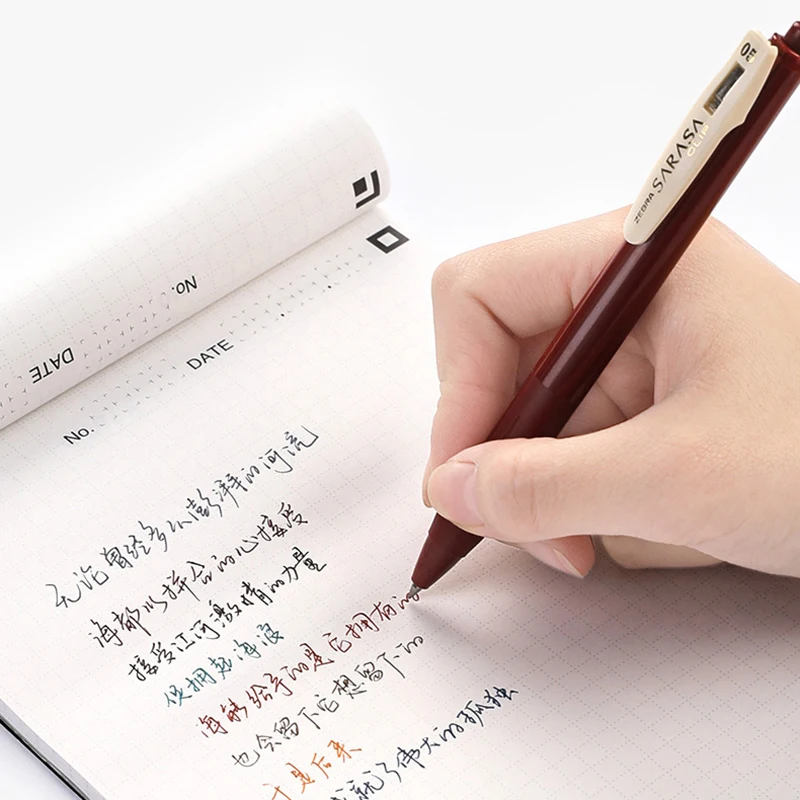 No.
DATE
DATE
No.
无论曾经多么澎湃的河流
海都以拼合的心接受
接受江河激情的力量
使拥起海浪
海能给予的是它拥有的
也会留下它想留下的
于是后来
成就了伟大的孤独
ZEBRA SARASA CLIP
05